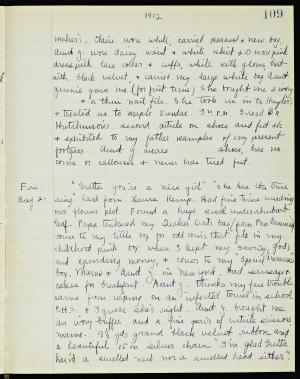 1912
109
mother's. Claire wore white, carried parasol & new bag,
Aunt J. wore daisy waist & white skirt & I wore pink
dress with lace collar & cuffs, white silk gloves, hat
with black velvet, & carried my large white bag Aunt
Jennie gave me (for first time). She bought me ivory
& a thin nail file. She took me in to Huyler's
& treated us to maple sundae. In P.M. I read Dr.
Hutchinson's second article on shoes and feet etc
& exhibited to my father samples of my present
footgear. Aunt J. wears shoes, has no
corns or callouses & never has tired feet.
Fri.
Aug 2.
"Gretta you're a nice girl" "She has the true
ring" Card from Laura Kemp. Had fine time weeding
our flower plot. Found a huge snail underneath
leaf. Papa tinkered my Quaker Oats box
cover to my little box for old coins that I kept in my
childhood pink box where I kept my "saving, gods
and spending money, & cover to my "special treasure
box. Mama & Aunt J. in New York. Had sausage &
cakes for breakfast. Aunt J. thinks my face trouble
came from wiping on an infected towel in school
P.H.S. & I guess she's right. Aunt J. bought me
an ivory buffer and a fine pair of cuticle scissors
mama 3½ yds grand black velvet ribbon and
a beautiful 15 in silver chain. "I'm glad Gretta
hasn't a swelled neck nor a swelled head either".